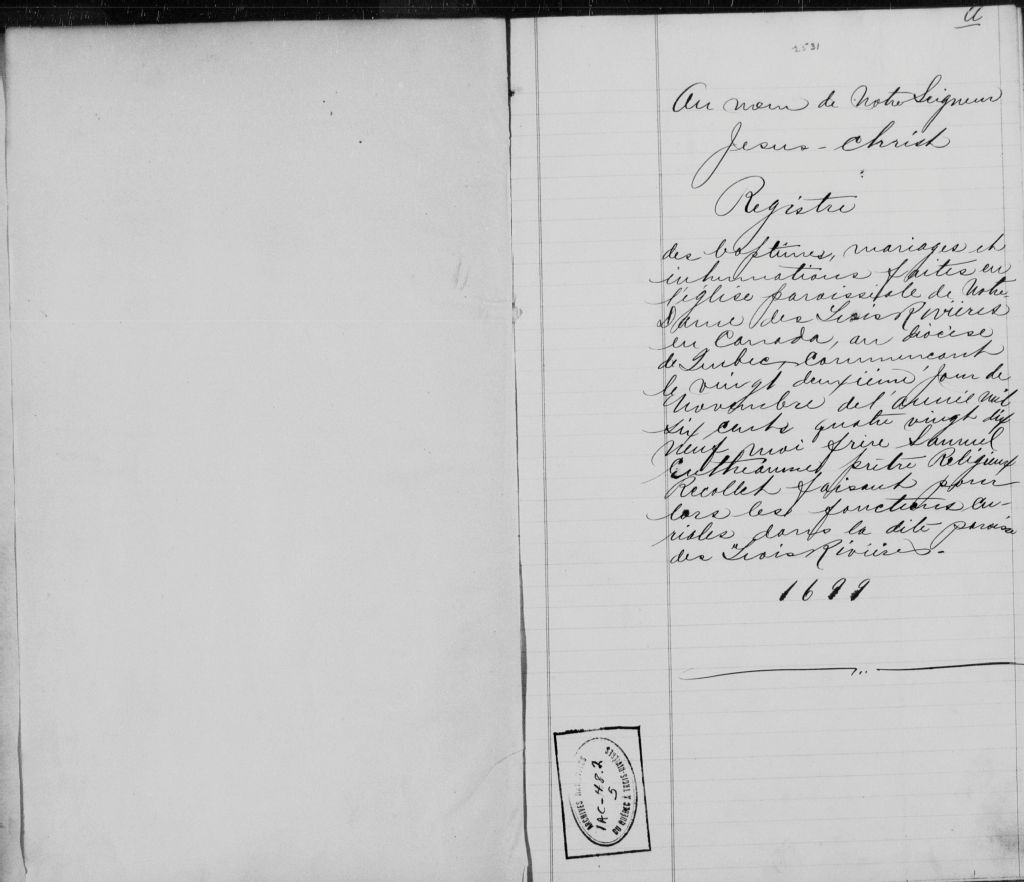 a
2531
Au nom de Notre Seigneur
Jesus-Christ
Registre
des baptimes, mariages et
inhumations faites en
l'église paroissiale de Notre-
Dame des Trois Rivières
en Canada, au diocèse
de Quebec, Commencant
le vingt deuxième jour de
Novembre de l'année mil
six cents quatre vingt dix
neuf, moi frère Samuel
Entheaume, prêtre Religieux
Recollet faisant pour
lors les fonctions cu-
riales dans la dite paroisse
des Trois Rivières.
1699
ARCHIVES NATIONALES
1AC-48.2
5
DU QUÉBEC À TROIS-RIVIÈRES